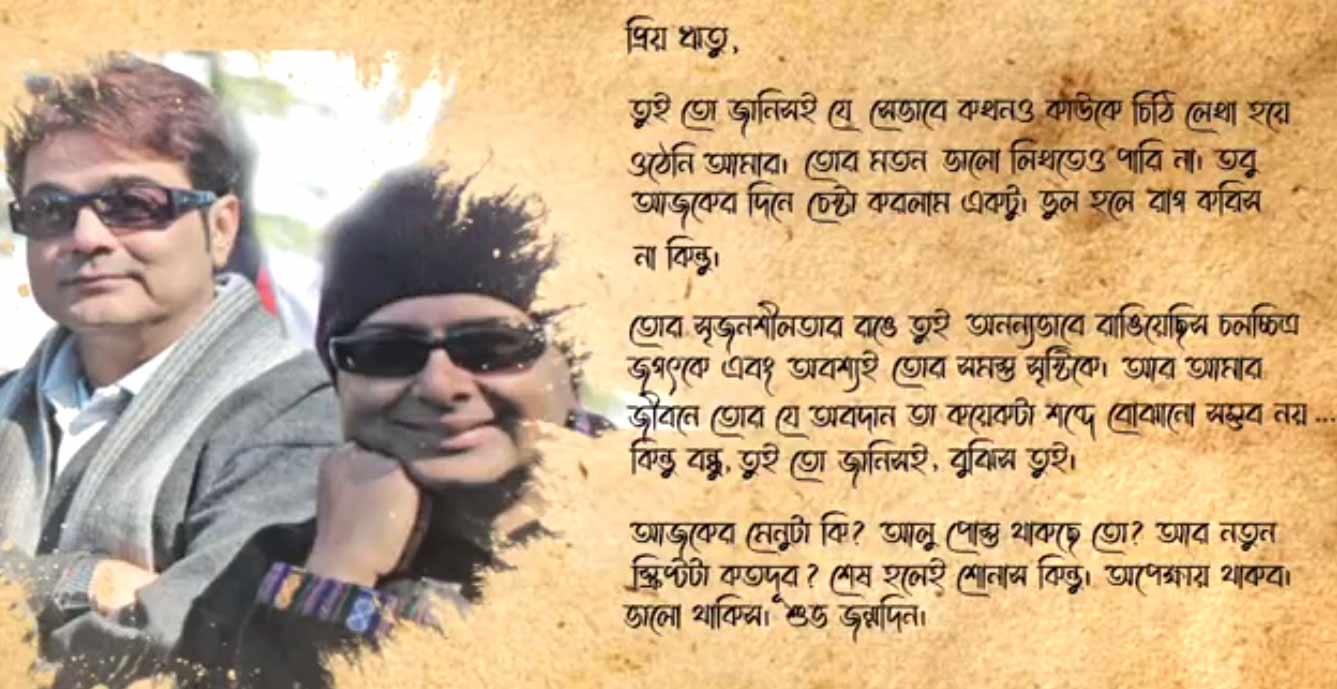 প্রিয় ঋতু,
তুই তো জানিসই যে সেভাবে কখনও কাউকে চিঠি লেখা হয়ে
ওঠেনি আমার। তোর মতন ভালো লিখতেও পারি না। তবু
আজকের দিনে চেষ্টা করলাম একটু। ভুল হলে রাগ করিস
না কিন্তু।
তোর সৃজনশীলতার রঙে তুই অনন্যভাবে রাঙিয়েছিস চলচ্চিত্র
জগৎকে এবং অবশ্যই তোর সমস্ত সৃষ্টিকে। আর আমার
জীবনে তোর যে অবদান তা কয়েকটা শব্দে বোঝানো সম্ভব নয় ...
কিন্তু বন্ধু, তুই তো জানিসই, বুঝিস তুই।
আজকের মেনুটা কি? আলু পোস্ত থাকছে তো? আর নতুন
স্ক্রিপ্টটা কতদূর? শেষ হলেই শোনাস কিন্তু। অপেক্ষায় থাকব।
ভালো থাকিস। শুভ জন্মদিন।